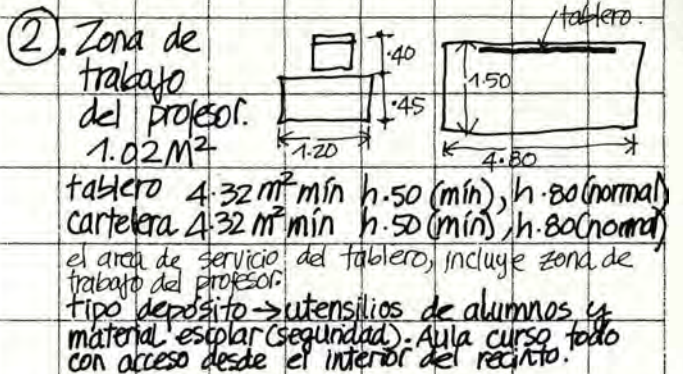 2. Zona de
trabajo
del profesor.
1.02 M²
.40
.45
1.20
tablero.
1.50
4.80
tablero 4.32 m² mín h.50 (mín), h.80 (normal)
cartelera 4.32 m² mín h.50 (mín), h.80 (normal)
el area de servicio del tablero, incluye zona de
trabajo del profesor.
tipo depósito → utensilios de alumnos y
material escolar (seguridad). Aula curso todo
con acceso desde el interior del recinto.